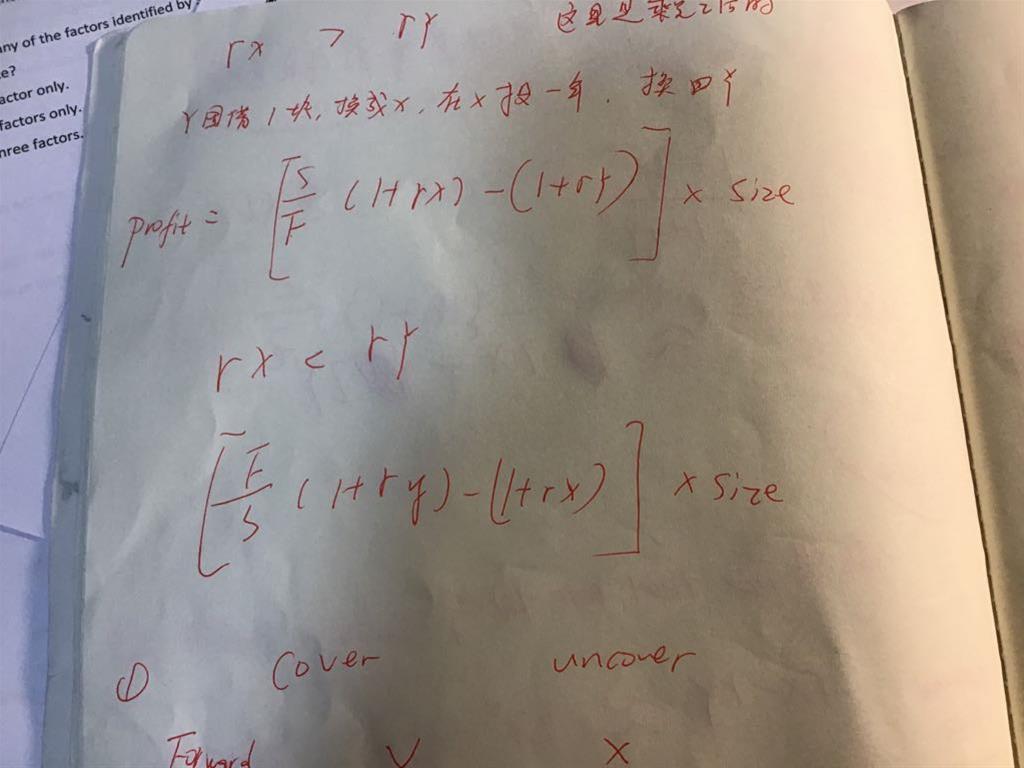 any of the factors identified by
e?
actor only.
factors only.
hree factors.
rx > ry 这里是
Y国借1块,换成X,在X投一年.换回Y
profit = [S/F (1+rx) - (1+ry)] × size
rx < ry
[F/S (1+ry) - (1+rx)] × size
① Cover uncover
Forward V X